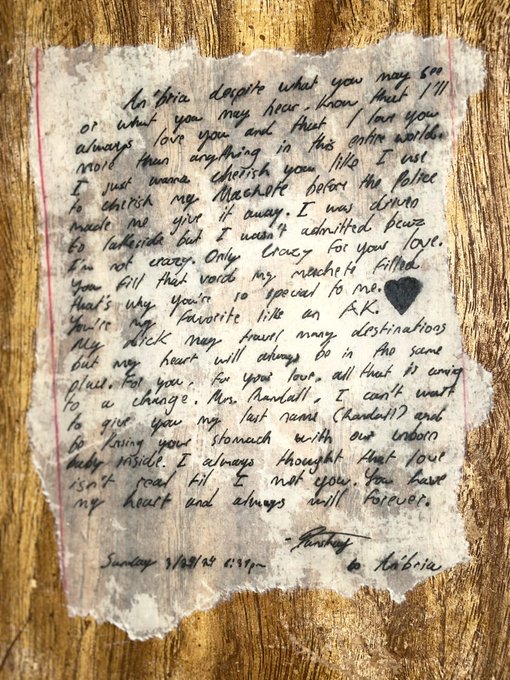 An'bria despite what you may see
or what you may hear. Know that I'll
always love you and that I love you
more than anything in this entire world.
I just wanna cherish you like I use
to cherish my Machete before the Police
made me give it away. I was driven
to lakeside but I wasn't admitted becuz
I'm not crazy. Only Crazy for your love.
You fill that void my machete filled
that's why you're so special to me.
You're my favorite like an AK.
My dick may travel many destinations
but my heart will always be in the same
place. For you, for your love, all that is coming
to a change. Mrs. Randall, I can't wait
to give you my last name (Randall) and
be kissing your stomach with our unborn
baby inside. I always thought that love
isn't real til I met you. You have
my heart and always will forever.
Sunday 3/29/24
to An'bria